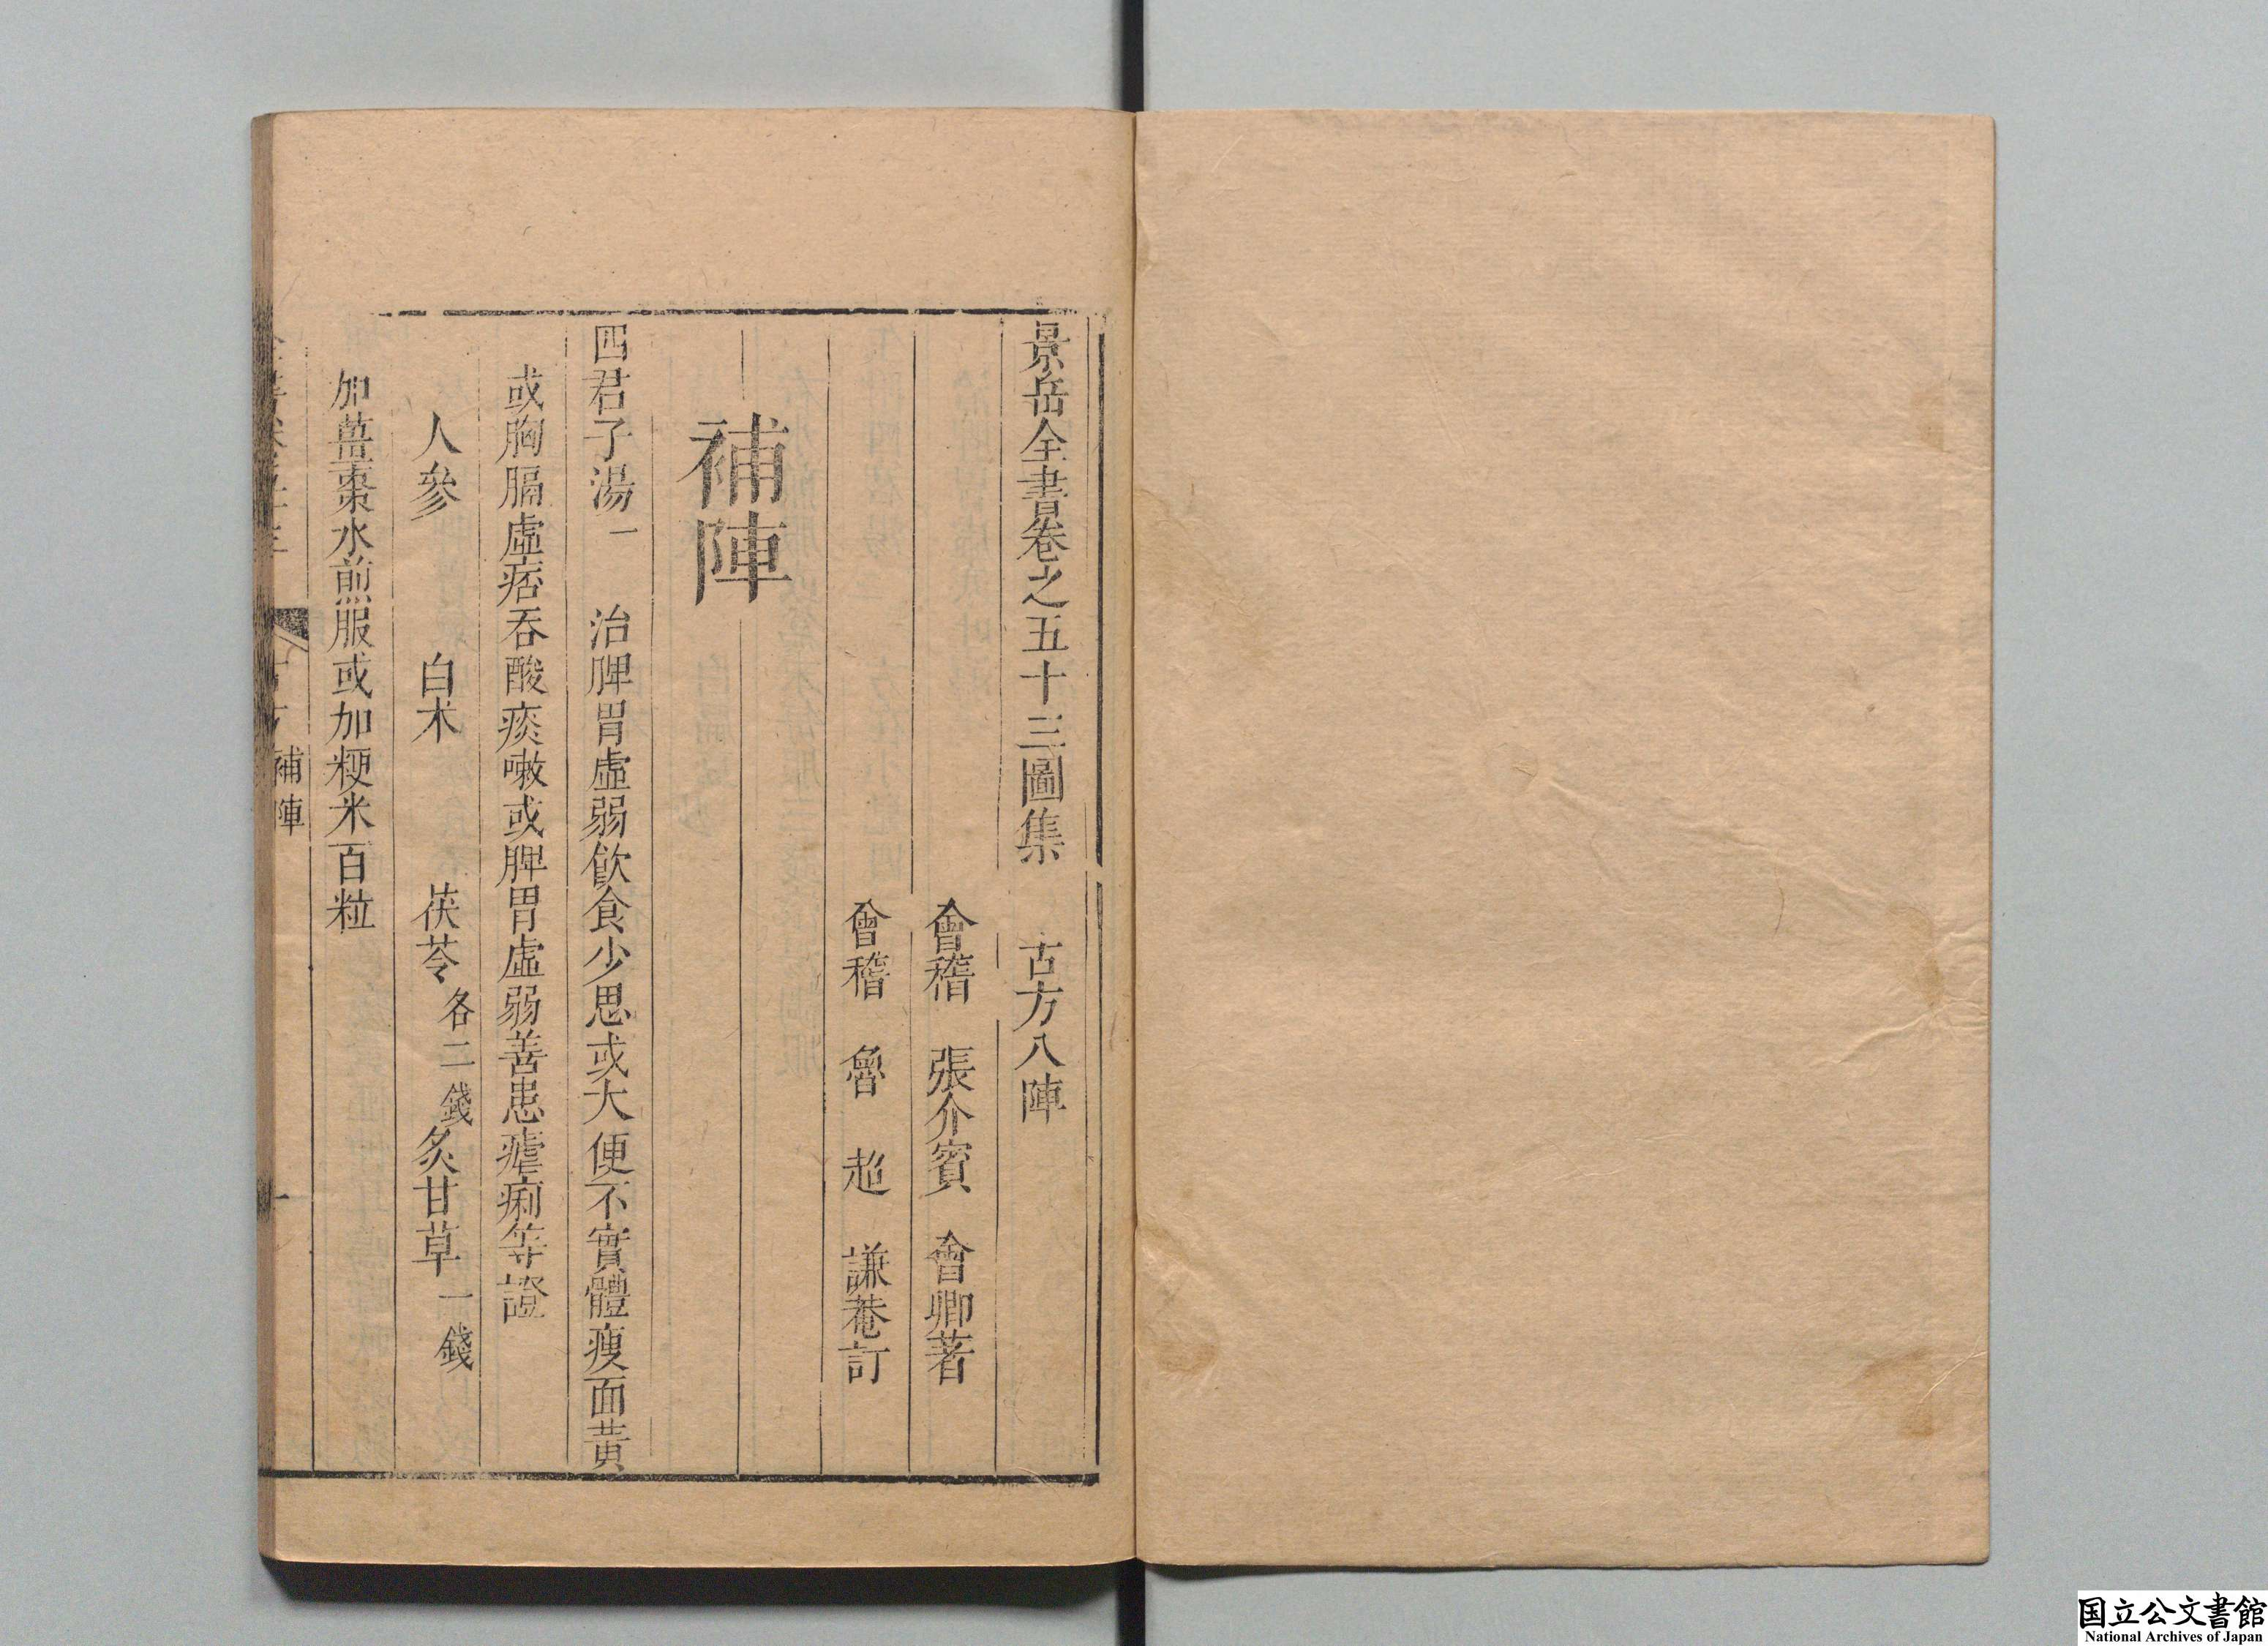 景岳全書卷之五十三圖集 古方八陣
會稽 張介賓 會卿著
會稽 魯 超 謙菴訂
補陣
四君子湯一 治脾胃虛弱飲食少思或大便不實體瘦面黃
或胸膈虛痞吞酸痰嗽或脾胃虛弱善患瘧痢等證
人參 白朮 茯苓各二錢 炙甘草一錢
加薑棗水煎服或加粳米百粒
補陣
国立公文書館
National Archives of Japan